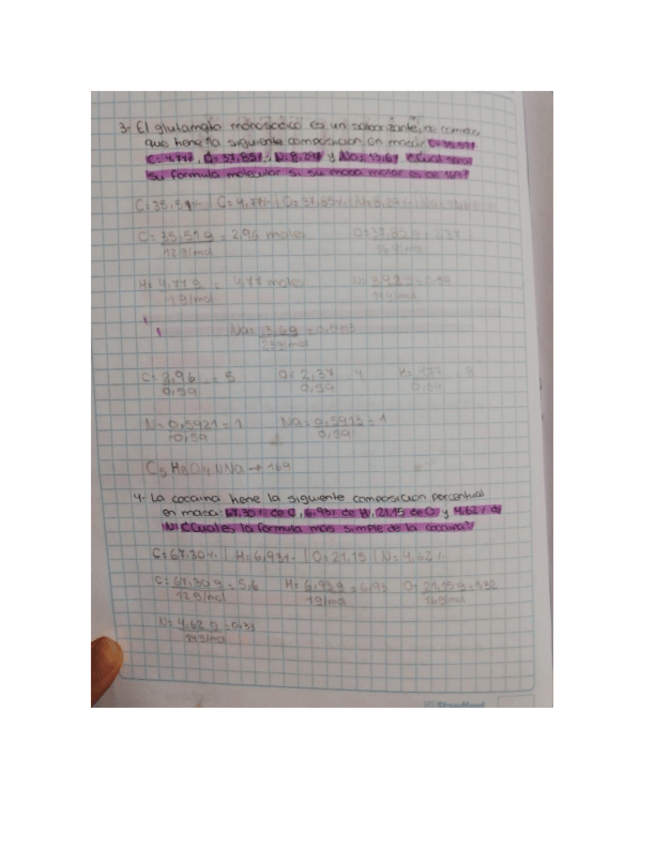 3- El glutamato monosódico es un saborizante de comidas
que tiene la siguiente composición en masa: C=35,51%
C=4,77%, O=37,85%, N=8,29% y Na=13,6%
su formula molecular si su masa molar es de 169?
C=35,51% | C=4,77% | O=37,85% | N=8,29% |
C= 35,51g = 2,96 moles O= 37,85g = 2,37
12g/mol 16g/mol
H= 4,77g = 4,77 moles
1g/mol 14g/mol
Na= 13,6g
23g/mol
C= 2,96 = 5 O= 2,37 4
0,59 0,59 0,59
N= 0,5921 = 1 Na= 0,5913 = 1
0,59 0,59
C5H8O4NNa → 169
4- La cocaina tiene la siguiente composicion percentual
en masa: 67,30% de C, 6,93% de H, 21,15 de O y 4,62% de
N. ¿Cual es la formula mas simple de la cocaina?
C= 67,30% | H= 6,93% | O= 21,15 | N= 4,62%
C= 67,30g = 5,6 H= 6,93g = 6,93 O= 21,15g = 1,32
12g/mol 1g/mol 16g/mol
N= 4,62g = 0,33
14g/mol
Standford